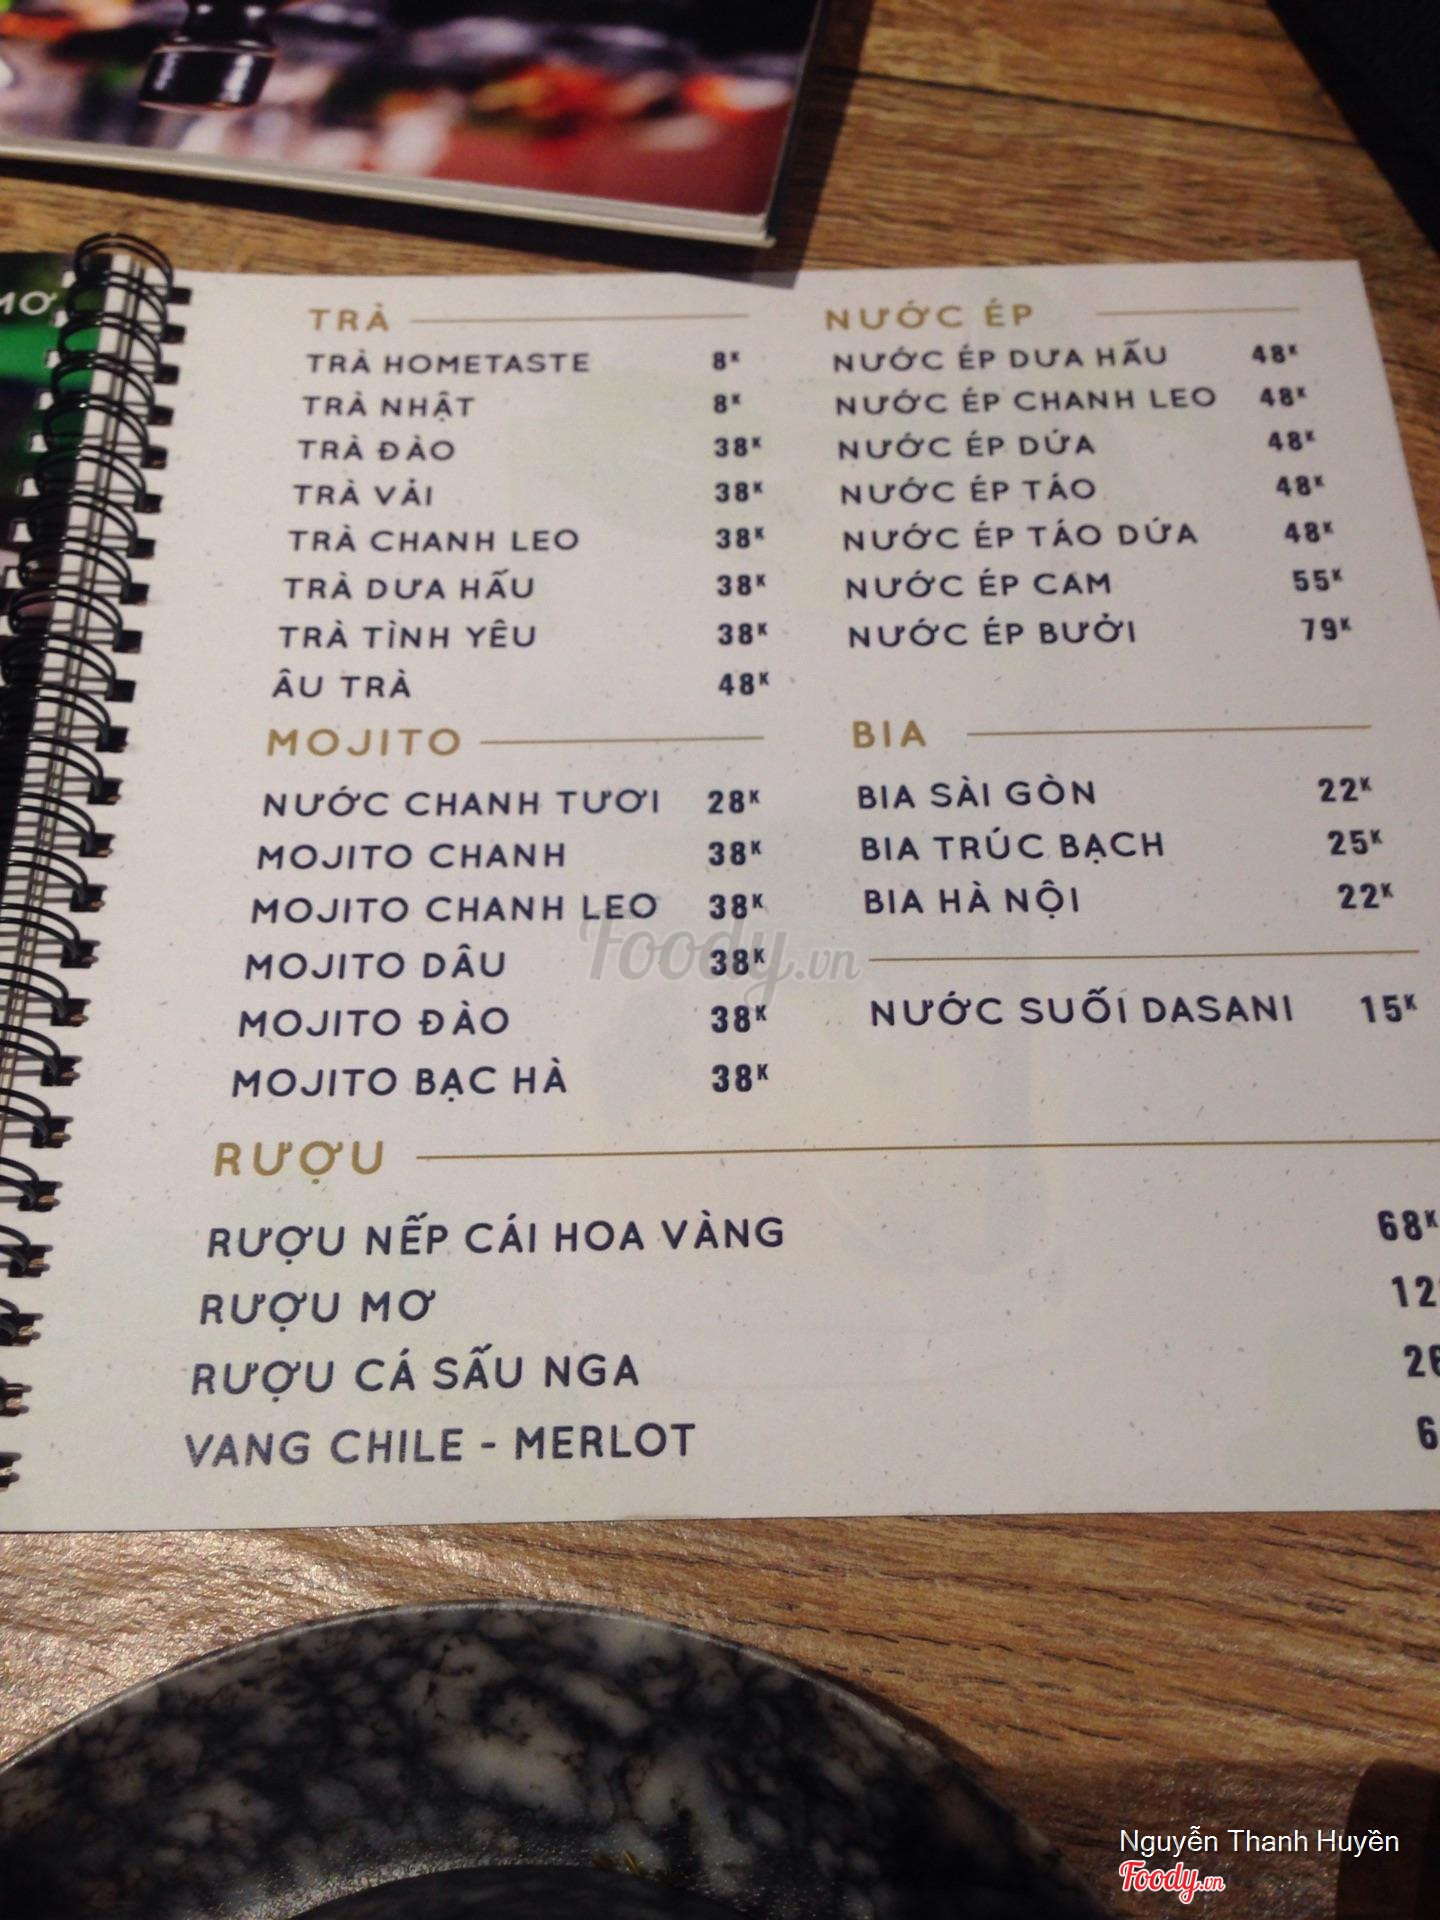 MƠ
TRÀ
TRÀ HOMETASTE 8K
TRÀ NHẬT 8K
TRÀ ĐÀO 38K
TRÀ VẢI 38K
TRÀ CHANH LEO 38K
TRÀ DƯA HẤU 38K
TRÀ TÌNH YÊU 38K
ÂU TRÀ 48K
MOJITO
NƯỚC CHANH TƯƠI 28K
MOJITO CHANH 38K
MOJITO CHANH LEO 38K
MOJITO DÂU 38K
MOJITO ĐÀO 38K
MOJITO BẠC HÀ 38K
NƯỚC ÉP
NƯỚC ÉP DƯA HẤU 48K
NƯỚC ÉP CHANH LEO 48K
NƯỚC ÉP DỨA 48K
NƯỚC ÉP TÁO 48K
NƯỚC ÉP TÁO DỨA 48K
NƯỚC ÉP CAM 55K
NƯỚC ÉP BƯỞI 79K
BIA
BIA SÀI GÒN 22K
BIA TRÚC BẠCH 25K
BIA HÀ NỘI 22K
NƯỚC SUỐI DASANI 15K
RƯỢU
RƯỢU NẾP CÁI HOA VÀNG 68K
RƯỢU MƠ
RƯỢU CÁ SẤU NGA
VANG CHILE - MERLOT
Foody.vn
Nguyễn Thanh Huyền
Foody.vn